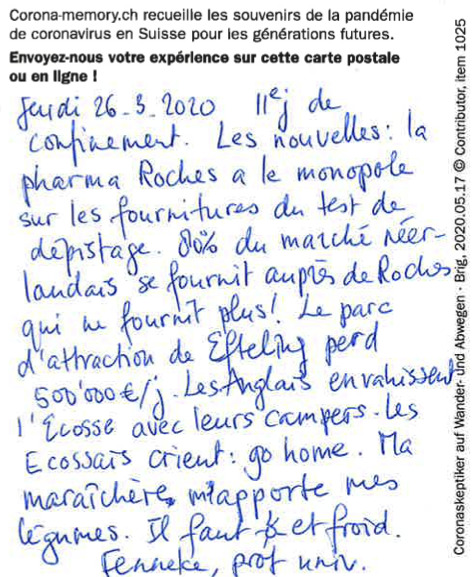 Corona-memory.ch recueille les souvenirs de la pandémie
de coronavirus en Suisse pour les générations futures.
Envoyez-nous votre expérience sur cette carte postale
ou en ligne !
Jeudi 26-3-2020 11ᵉj de
confinement. Les nouvelles: la
pharma Roches a le monopole
sur les fournitures du test de
dépistage. 80% du marché néer-
landais se fournit auprès de Roches
qui ne fournit plus! Le parc
d'attraction de Efteling perd
500'000€/j. Les Anglais envahissent
l'Ecosse avec leurs campers. Les
Ecossais crient: go home. Ma
maraîchère m'apporte mes
légumes. Il faut et froid.
Fenneke, prof univ.
Coronaskeptiker auf Wander- und Abwegen · Brig, 2020.05.17 © Contributor, item 1025